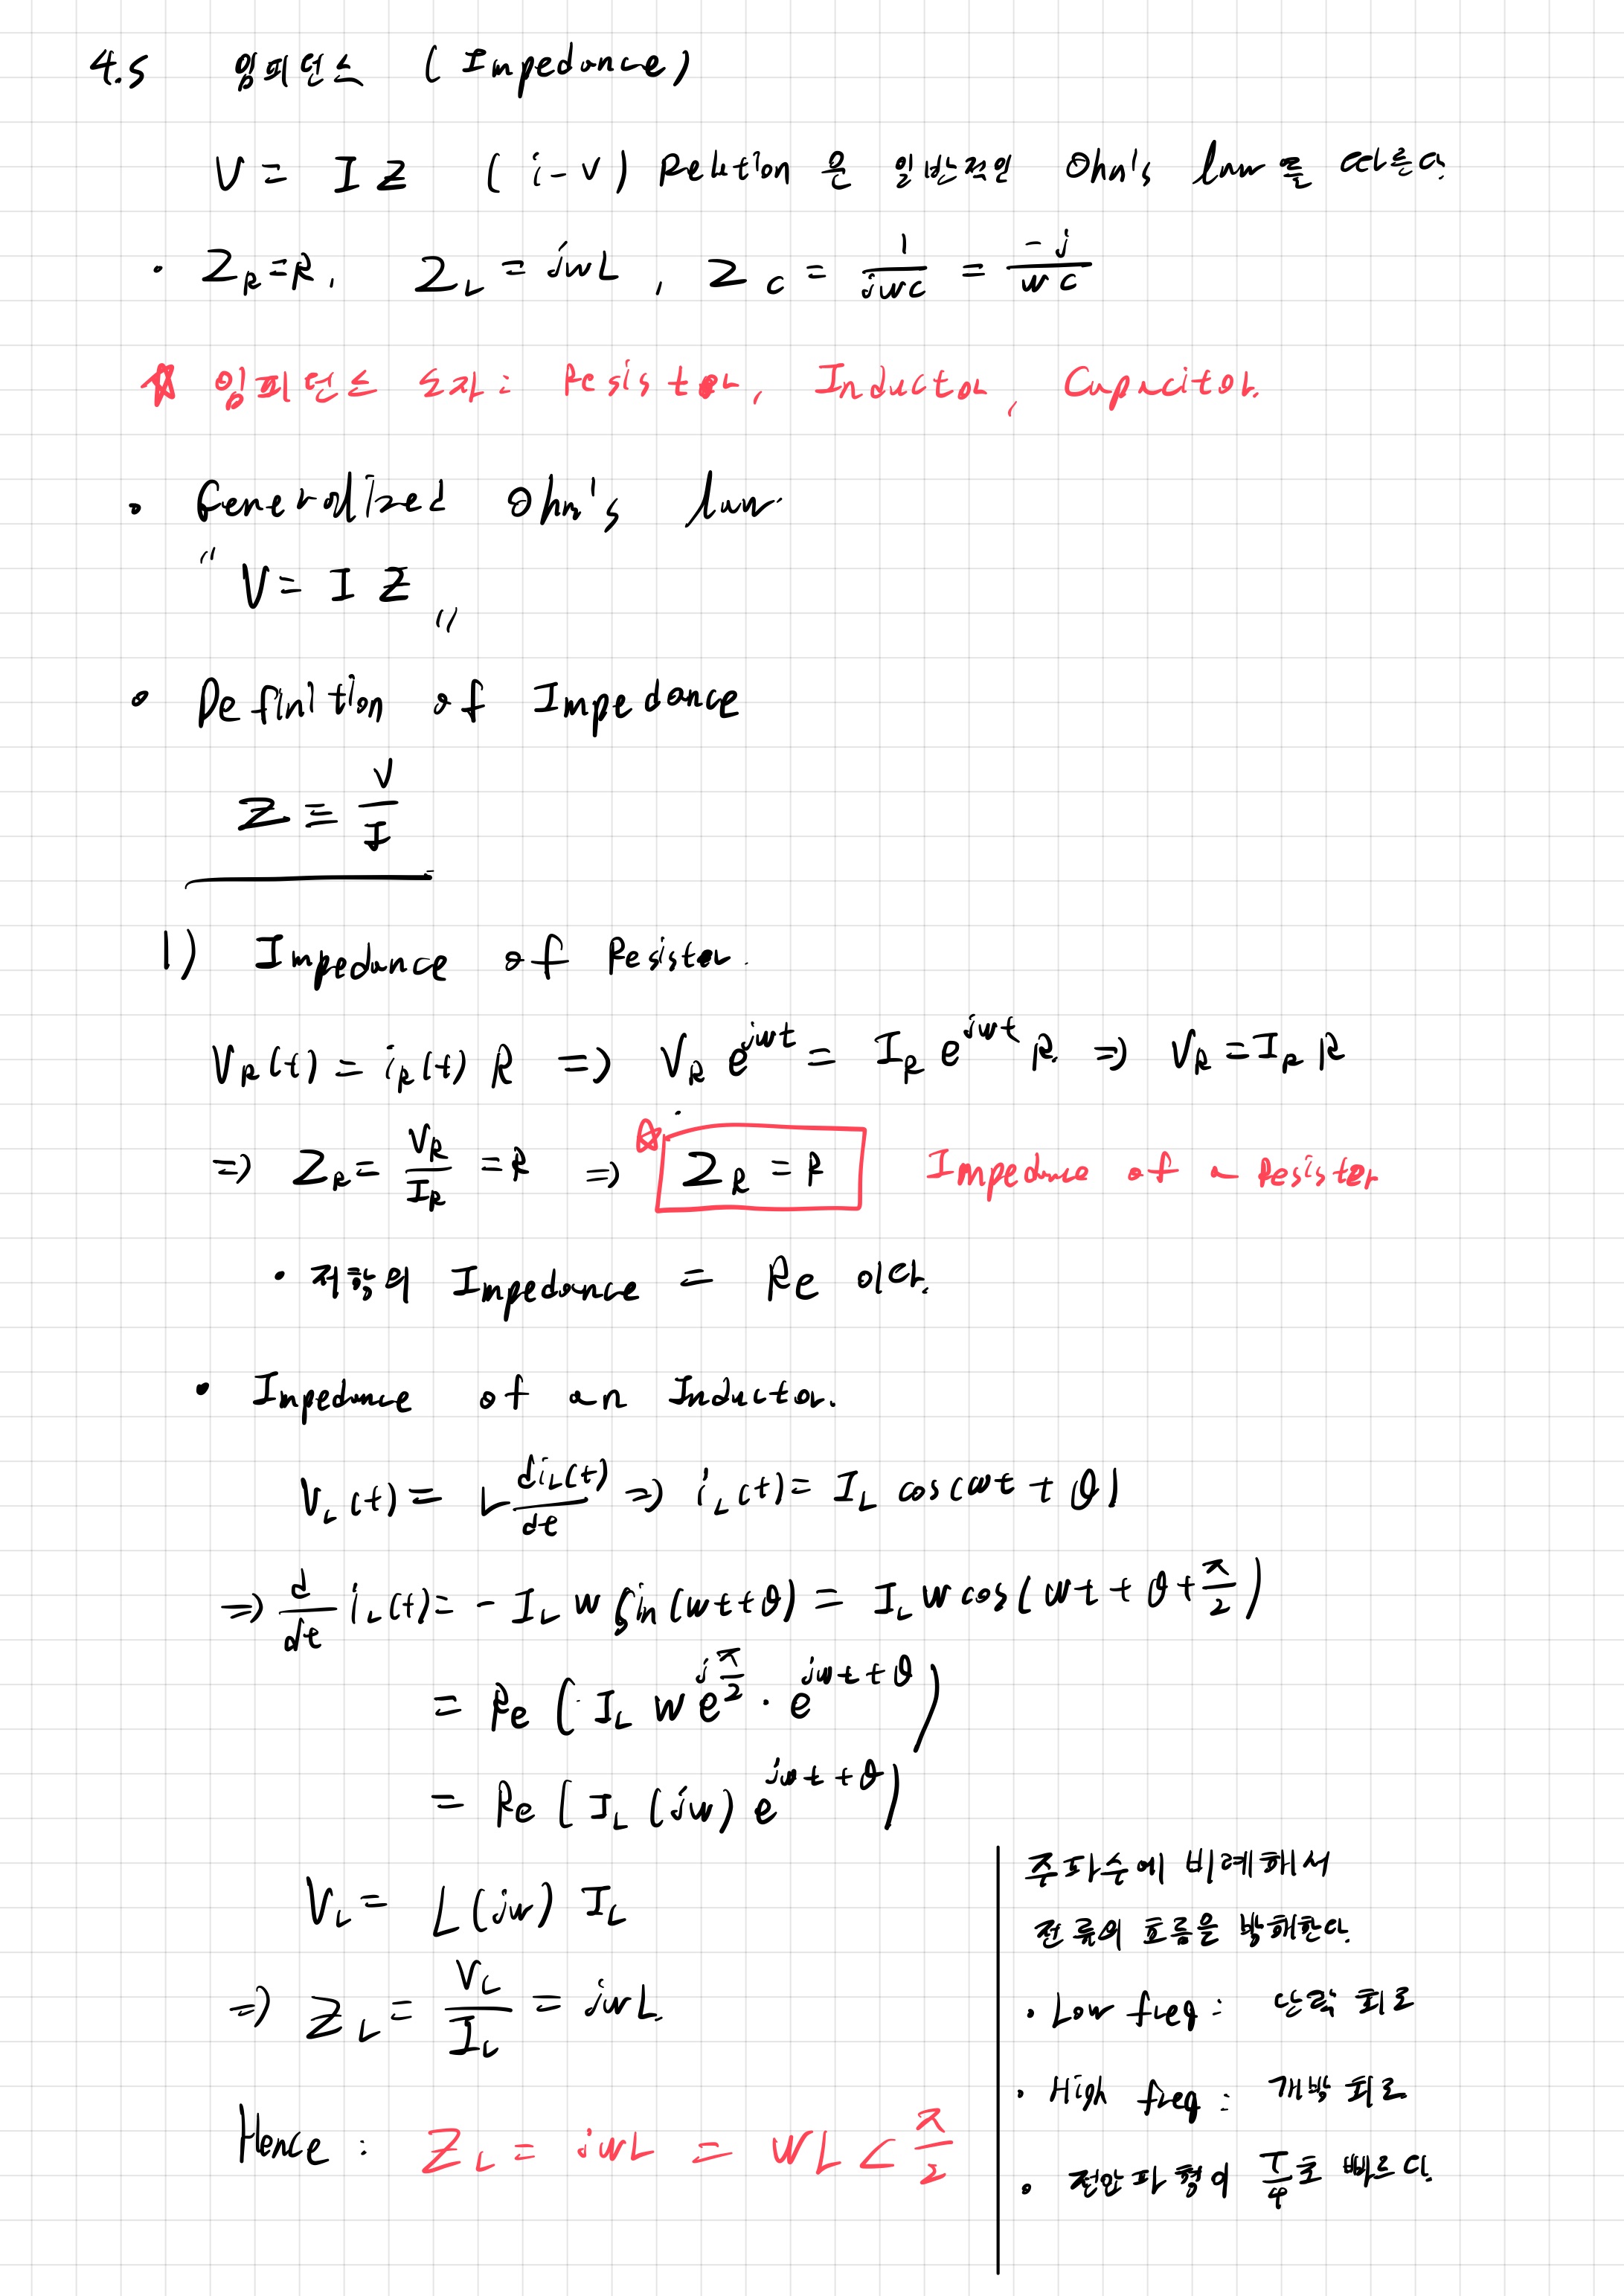 4.5 임피던스 (Impedance)
V = I Z (i-v) Relation 은 일반적인 Ohm's law를 따른다.
· Z_R = R, Z_L = jwL, Z_C = 1/jwc = -j/wc
☆ 임피던스 소자: Resistor, Inductor, Capacitor.
· Generalized Ohm's law
" V = I Z "
· Definition of Impedance
Z ≡ V/I
1) Impedance of Resistor.
V_R(t) = i_R(t) R => V_R e^{jwt} = I_R e^{jwt} R. => V_R = I_R R
=> Z_R = V_R/I_R = R => ☆ Z_R = R Impedance of a Resistor
· 저항의 Impedance = Re 이다.
· Impedance of an Inductor.
V_L(t) = L di_L(t)/dt => i_L(t) = I_L cos(wt + θ)
=> d/dt i_L(t) = - I_L w sin(wt+θ) = I_L w cos(wt + θ + π/2)
= Re ( I_L w e^{jπ/2} · e^{jwt+θ} )
= Re ( I_L (jw) e^{jwt+θ} )
V_L = L(jw) I_L
=> Z_L = V_L/I_L = jwL.
Hence : Z_L = jwL = wL∠π/2
주파수에 비례해서
전류의 흐름을 방해한다.
· Low freq : 단락 회로
· High freq : 개방 회로
· 전압파형이 T/4초 빠르다.